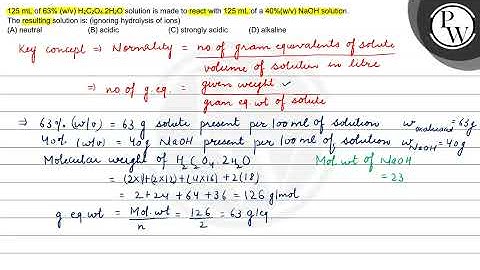 125 mL of 63% (w/v) H₂C₂O₄.2H₂O solution is made to react with 125 mL of a 40%(w/v) NaOH solution.
The resulting solution is: (ignoring hydrolysis of ions)
(A) neutral (B) acidic (C) strongly acidic (D) alkaline
PW
Key concept ⇒ Normality = no of gram equivalents of solute / volume of solution in litre
⇒ no of g.eq. = given weight / gram eq. wt of solute
⇒ 63% (w/v) = 63 g solute present per 100 ml of solution w oxalic acid = 63g
40% (w/v) = 40g NaOH present per 100 ml of solution w NaOH = 40g
Molecular weight of H₂C₂O₄.2H₂O Mol. wt of NaOH
= (2×1)+(2×12)+(4×16)+2(18) = 23
= 2+24+64+36 = 126 g/mol
g eq wt = Mol. wt / n = 126 / 2 = 63 g/eq